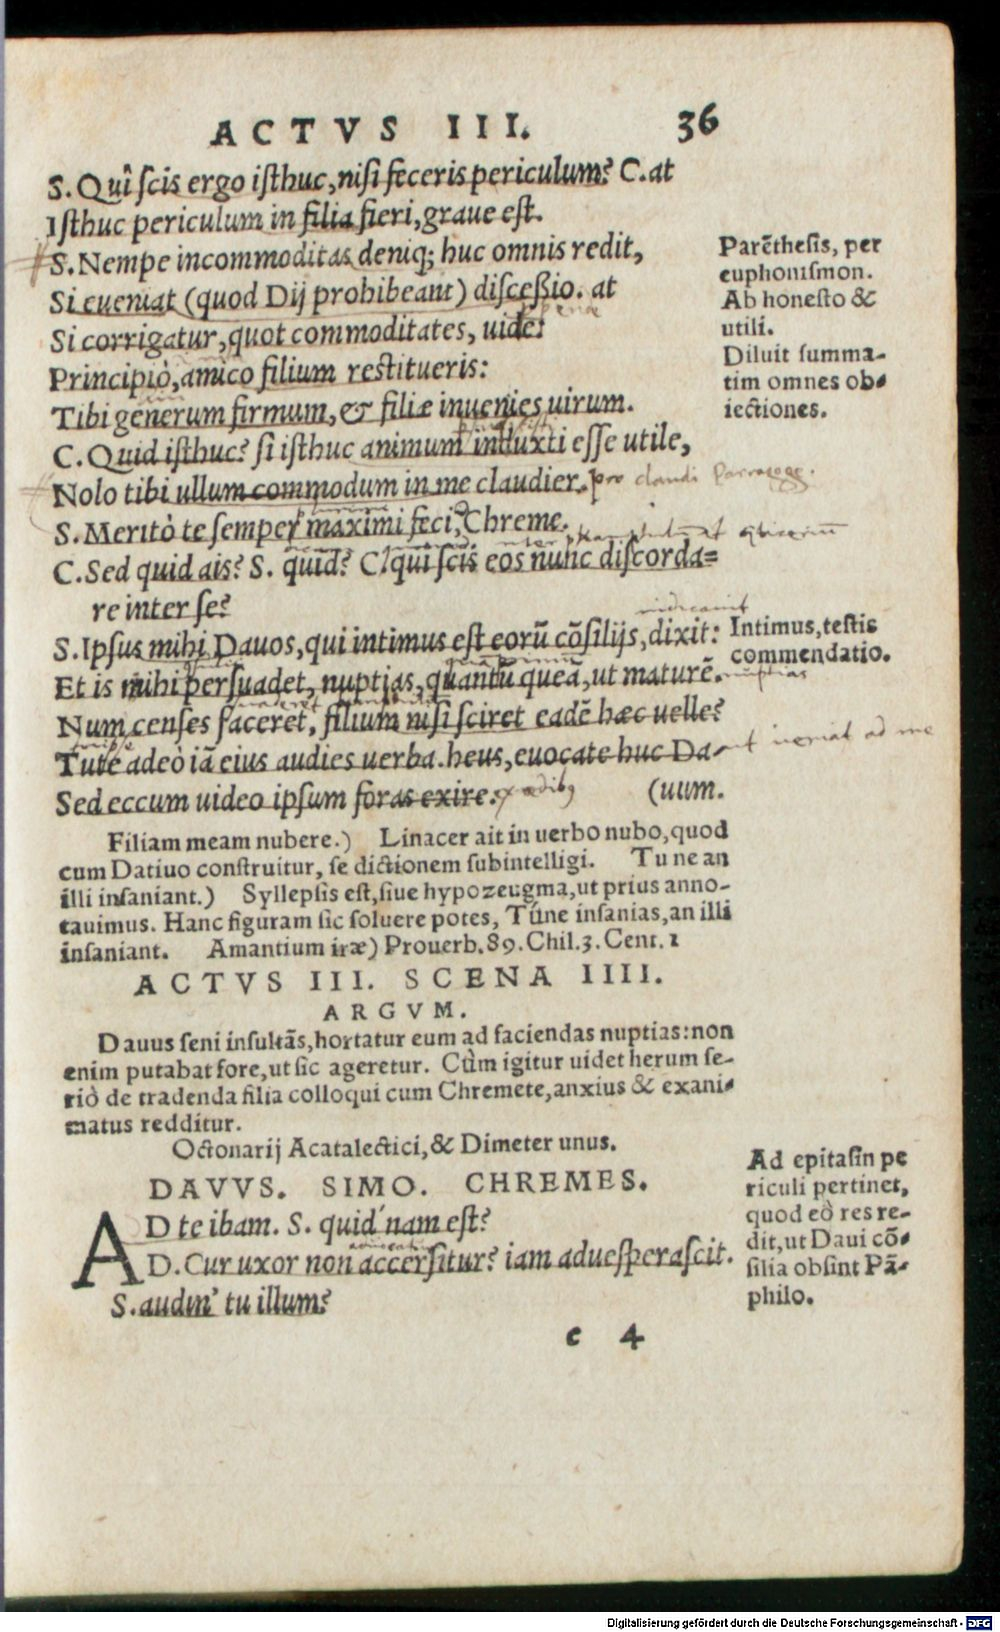 ACTVS III. 36
S. Quî scis ergo isthuc, nisi feceris periculum? C. at
Isthuc periculum in filia fieri, graue est.
S. Nempe incommoditas deniq; huc omnis redit,
Si eueniat (quod Dij prohibeant) discessio. at
Si corrigatur, quot commoditates, uide:
Principiò, amico filium restitueris:
Tibi generum firmum, & filiæ inuenies uirum.
C. Quid isthuc? si isthuc animum induxti esse utile,
Nolo tibi ullum commodum in me claudier. pro claudi
S. Meritò te semper maximi feci, Chreme.
C. Sed quid ais? S. quid? C. qui scis eos nunc discorda=
re inter se?
S. Ipsus mihi Dauos, qui intimus est eorũ cõsilijs, dixit:
Et is mihi persuadet, nuptias, quantũ queã, ut maturẽ.
nuptias
Num censes faceret, filium nisi sciret eadẽ hæc uelle?
Tute adeò iã eius audies uerba. heus, euocate huc Da-
ut ueniat ad me
Sed eccum uideo ipsum foras exire. (uum.
Parẽthesis, per
euphonismon.
Ab honesto &
utili.
Diluit summa-
tim omnes ob-
iectiones.
Intimus, testis
commendatio.
Filiam meam nubere.) Linacer ait in uerbo nubo, quod
cum Datiuo construitur, se dictionem subintelligi. Tu ne an
illi insaniant.) Syllepsis est, siue hypozeugma, ut prius anno-
tauimus. Hanc figuram sic soluere potes, Túne insanias, an illi
insaniant. Amantium iræ) Prouerb. 89. Chil. 3. Cent. 1
ACTVS III. SCENA IIII.
ARGVM.
Dauus seni insultãs, hortatur eum ad faciendas nuptias: non
enim putabat fore, ut sic ageretur. Cùm igitur uidet herum se-
riò de tradenda filia colloqui cum Chremete, anxius & exani-
matus redditur.
Octonarij Acatalectici, & Dimeter unus.
DAVVS. SIMO. CHREMES.
AD te ibam. S. quid'nam est?
D. Cur uxor non accersitur? iam aduesperascit.
S. audin' tu illum?
Ad epitasin pe
riculi pertinet,
quod eò res re-
dit, ut Daui cõ-
silia obsint Pã-
philo.
c 4
Digitalisierung gefördert durch die Deutsche Forschungsgemeinschaft - DFG